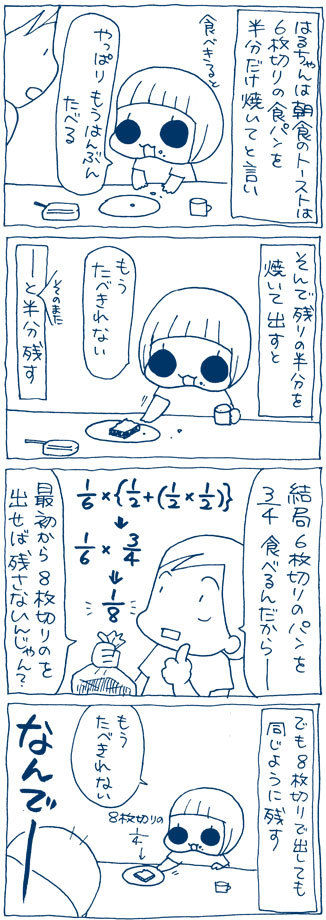 はるちゃんは朝食のトーストは
6枚切りの食パンを
半分だけ焼いてと言い
食べきると
やっぱりもうはんぶん
たべる
そんで残りの半分を
焼いて出すと
もう
たべきれない
そのまた
ーと半分残す
結局6枚切りのパンを
3/4食べるんだからー
1/6×{1/2+(1/2×1/2)}
↓
1/6×3/4
↓
1/8
最初から8枚切りのを
出せば、残さないんじゃん?
でも8枚切りで出しても
同じように残す
もう
たべきれない
8枚切りの
1/4
↓
なんでー